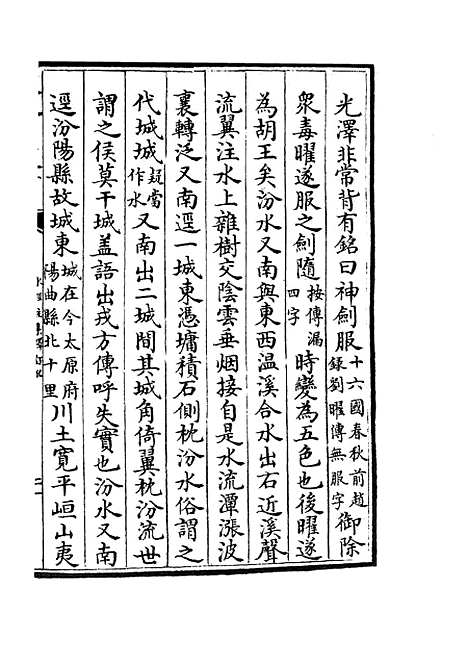 光澤非常背有銘曰神劍服十六國春秋前趙録劉曜傳無服字御除
衆毒曜遂服之劍隨按傳漏四字時變為五色也後曜遂
為胡王矣汾水又南與東西温溪合水出石近溪聲
流翼注水上雜樹交陰雲垂烟接自是水流潭漲波
裏轉泛又南逕一城東憑墉積石側枕汾水俗謂之
代城城疑當作水又南出二城間其城角倚翼枕汾流世
謂之侯莫干城盖語出戎方傳呼失實也汾水又南
逕汾陽縣故城東城在今太原府陽曲縣北十里川土寬平峘山夷